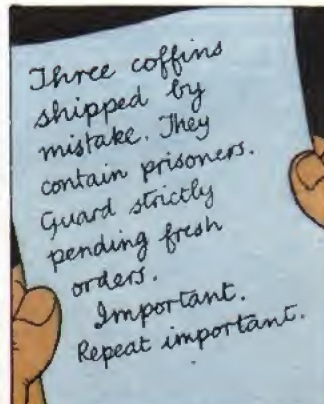 Three coffins
shipped by
mistake. They
contain prisoners.
Guard strictly
pending fresh
orders.
Important.
Repeat important.